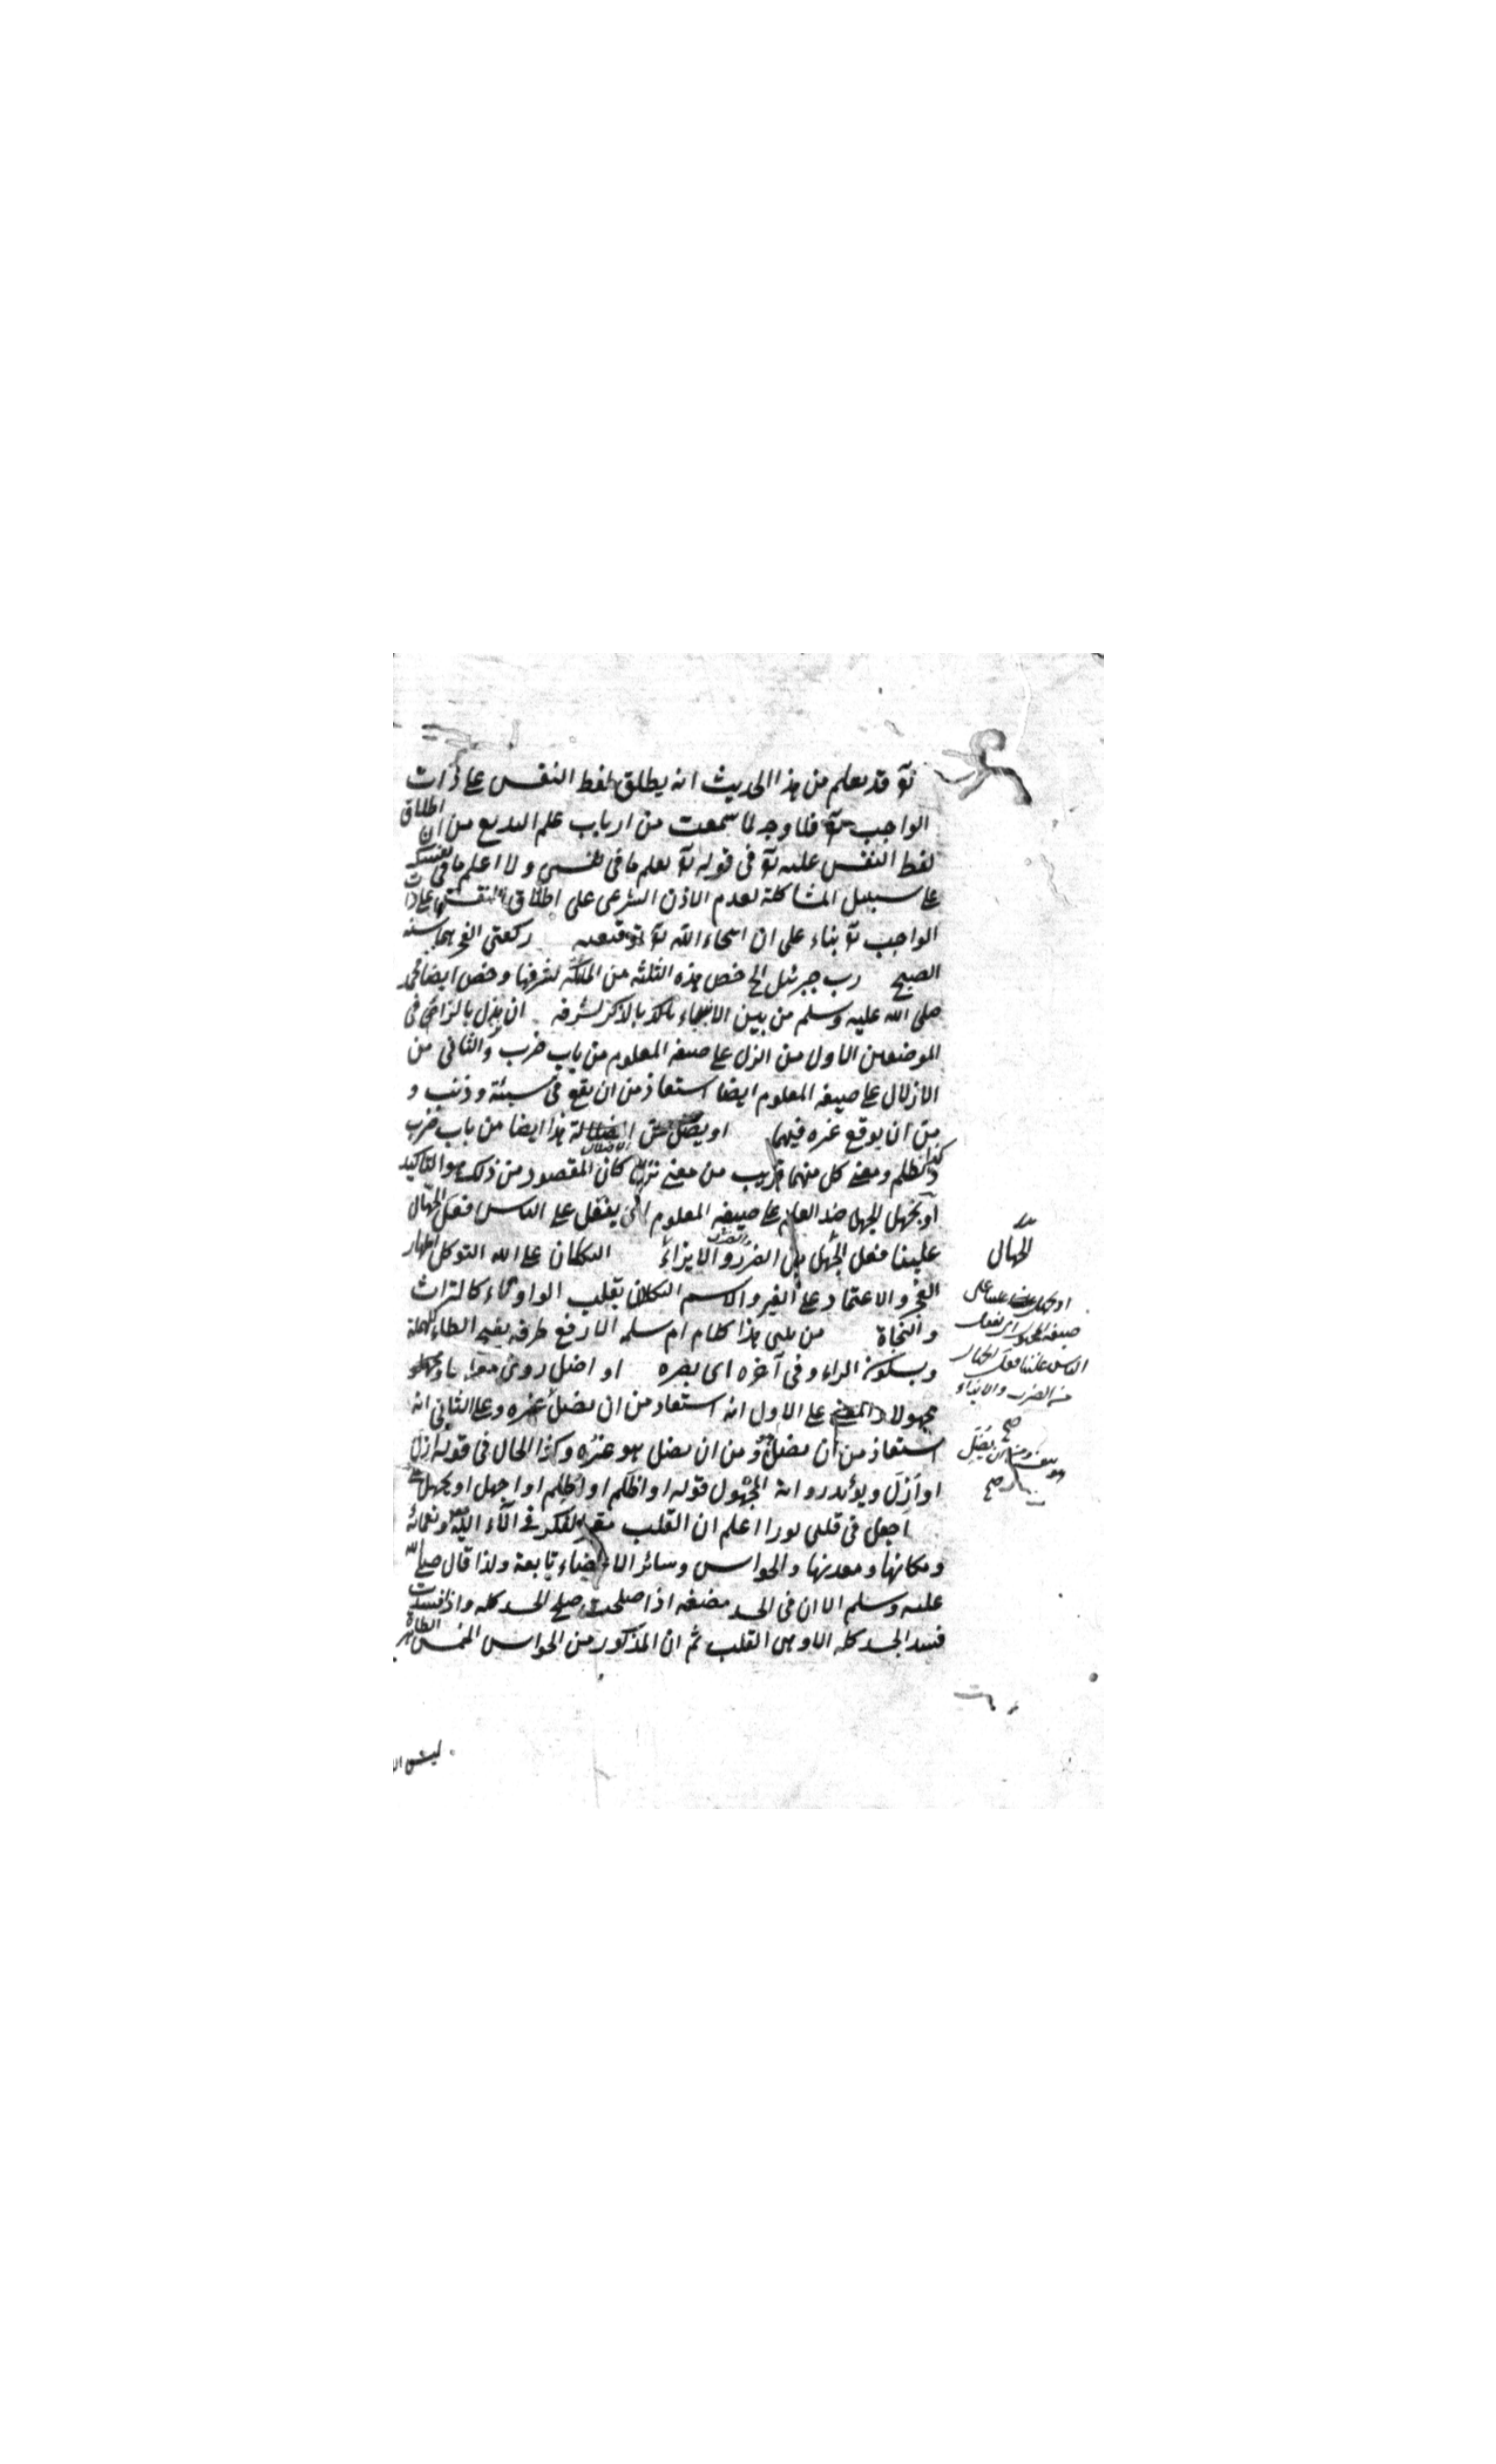 تع قد يعلم من هذا الحديث انه يطلق لفظ النفس على ذات
الواجب تع فلا وجه لما سمعت من ارباب علم البديع من ان اطلاق
لفظ النفس عليه تع فى قوله تع يعلم ما فى نفسى ولا اعلم ما فى نفسك
على سبيل المشاكلة لعدم الاذن الشرعى على اطلاق النفس على ذات
الواجب تع بناء على ان اسماء الله تع توقيفية ركعتى الفجر هما سنة
الصبح رب جبرئيل الخ خص هذه الثلثة من الملئكة لشرفها وخص ايضا محمد
صلى الله عليه وسلم من بين الانبياء بالذكر لشرفه ان نزل بالزاى فى
الموضعين الاول من الزل على صيغة المعلوم من باب ضرب والثانى من
الازلال على صيغة المعلوم ايضا استعاذ من ان يقع فى سيئة وذنب و
من ان يوقع غيره فيهما او يضل من الضلالة هذا ايضا من باب ضرب
كذا نظلم ومعنى كل منهما قريب من معنى نزل كان المقصود من ذلك هو التاكيد
او نجهل الجهل ضد العلم على صيغة المعلوم ان يفعل على الناس فعل الجهال
علينا فعل الجهل من الضرر والايذاء التكلان على الله التوكل اظهار
العجز والاعتماد على الغير والاسم التكلان بقلب الواو تاء كالتراث
والتخاة من بيتى هذا كلام ام سلمة الا رفع طرفه بفتح الطاء المهملة
وبسكون الراء وفى آخره اى بصره او اضل روى معلوما ومجهولا
مجهولا والمعنى على الاول انه استعاذ من ان يضل غيره وعلى الثانى انه
استعاذ من ان يضل هو ومن ان يضل هو غيره وكذا الحال فى قوله ازل
او ازل ويؤيد رواية المجهول قوله او اظلم او اظلم او اجهل او يجهل على
اجعل فى قلبى نورا اعلم ان القلب مقر الفكر فى آلاء الله ونعمائه
ومكانها ومعدنها والحواس وسائر الاعضاء تابعة ولذا قال صلى الله
عليه وسلم الا ان فى الجسد مضغة اذا صلحت صلح الجسد كله واذا فسدت
فسد الجسد كله الا وهى القلب ثم ان المذكور من الحواس الخمس الظاهرة
الجهال
او يجهل علينا على
صيغة المجهول اى يفعل
الناس علينا فعل الجهال
من الضرب والايذاء
صح
ومن ان يضل
صح
ليس